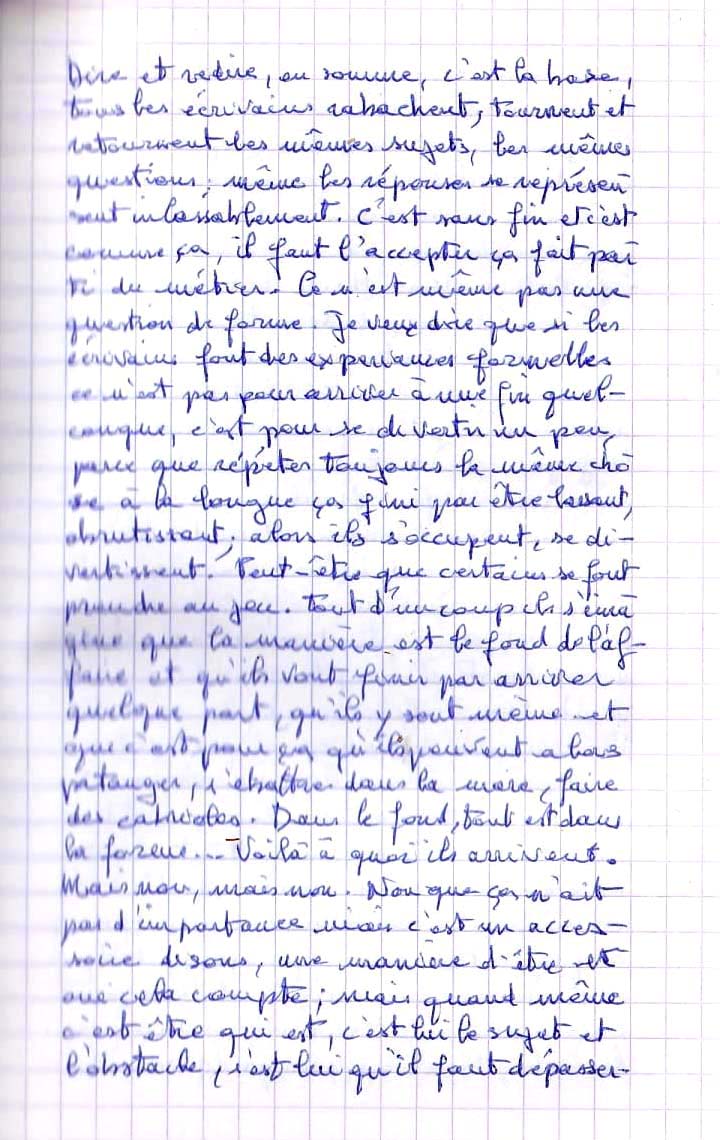 Dire et redire, en somme, c'est la base,
tous les écrivains rabachent, tournent et
retournent les mêmes sujets, les mêmes
questions; même les réponses se représen
tent inlassablement. C'est sans fin et c'est
comme ça, il faut l'accepter ça fait par
ti du métier. Ce n'est même pas une
question de forme. Je veux dire que si les
écrivains font des expériances formelles
ce n'est pas pour arriver à une fin quel-
conque, c'est pour se divertir un peu,
parce que répéter toujours la même cho
se à la longue ça fini par être lassant,
abrutissant, alors ils s'occupent, se di-
vertissent. Peut-être que certains se font
prendre au jeu. Tout d'un coup ils s'ima
gine que la manière est le fond de l'af-
faire et qu'ils vont finir par arriver
quelque part, qu'ils y sont même et
que c'est pour ça qu'ils peuvent alors
patauger, s'ébattre dans la mare, faire
des cabrioles. Dans le fond, tout est dans
la forme... Voilà à quoi ils arrivent.
Mais non, mais non. Non que ça n'ait
pas d'importance mais c'est un acces-
soire disons, une manière d'être et
que cela compte; mais quand même
c'est être qui est, c'est lui le sujet et
l'obstacle, c'est lui qu'il faut dépasser-